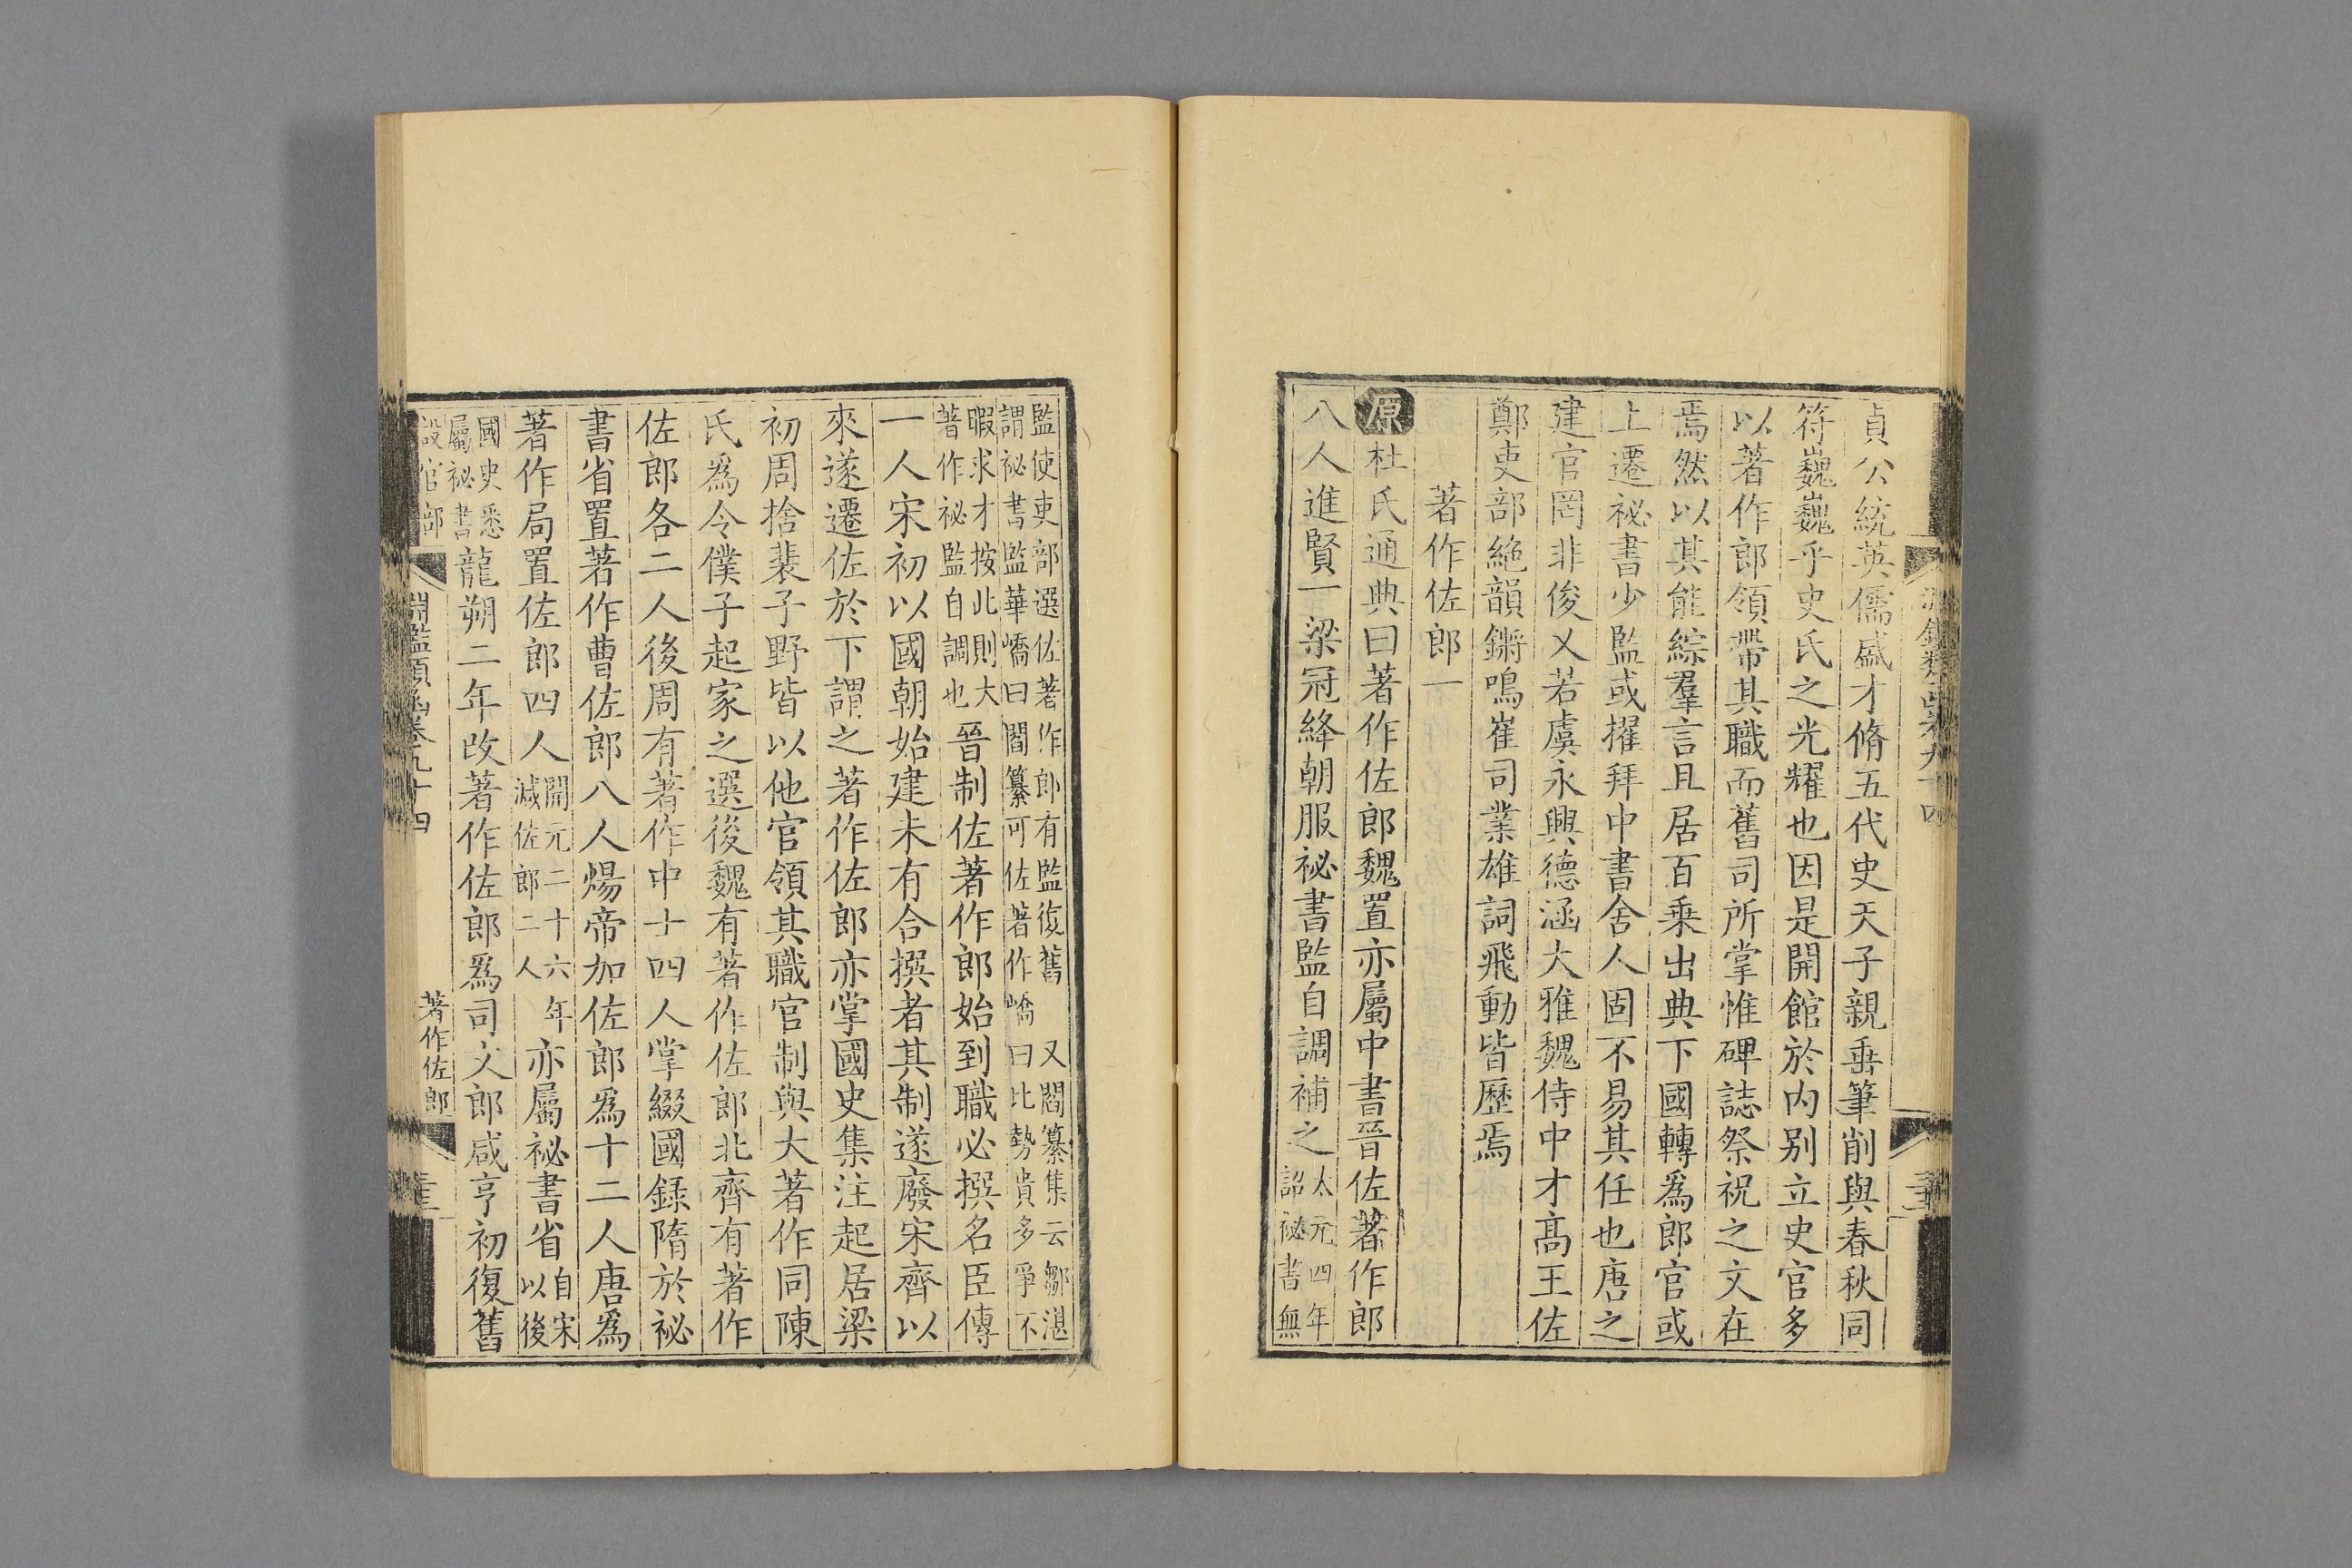 貞公統英儒盛才脩五代史天子親垂筆削與春秋同
符巍巍乎史氏之光耀也因是開館於内别立史官多
以著作郎領帶其職而舊司所掌惟碑誌祭祝之文在
焉然以其能綜羣言且居百乘出典下國轉爲郎官或
上遷祕書少監或擢拜中書舍人固不易其任也唐之
建官罔非俊乂若虞永興德涵大雅魏侍中才高王佐
鄭吏部絶韻鏘鳴崔司業雄詞飛動皆歷焉
著作佐郎一
原杜氏通典曰著作佐郎魏置亦屬中書晉佐著作郎
八人進賢一梁冠絳朝服祕書監自調補之太元四年詔祕書無
監使吏部選佐著作郎有監復舊 又閻纂集云鄒湛
謂祕書監華嶠曰閻纂可佐著作嶠曰此勢貴多爭不
暇求才按此則大著作祕監自調也晉制佐著作郎始到職必撰名臣傳
一人宋初以國朝始建未有合撰者其制遂廢宋齊以
來遂遷佐於下謂之著作佐郎亦掌國史集注起居梁
初周捨裴子野皆以他官領其職官制與大著作同陳
氏爲令僕子起家之選後魏有著作佐郎北齊有著作
佐郎各二人後周有著作中士四人掌綴國録隋於祕
書省置著作曹佐郎八人煬帝加佐郎爲十二人唐爲
著作局置佐郎四人開元二十六年減佐郎二人亦屬祕書省自宋以後
國史悉屬祕書龍朔二年改著作佐郎爲司文郎咸亨初復舊
設官部
淵鑑類函卷九十四
著作佐郎